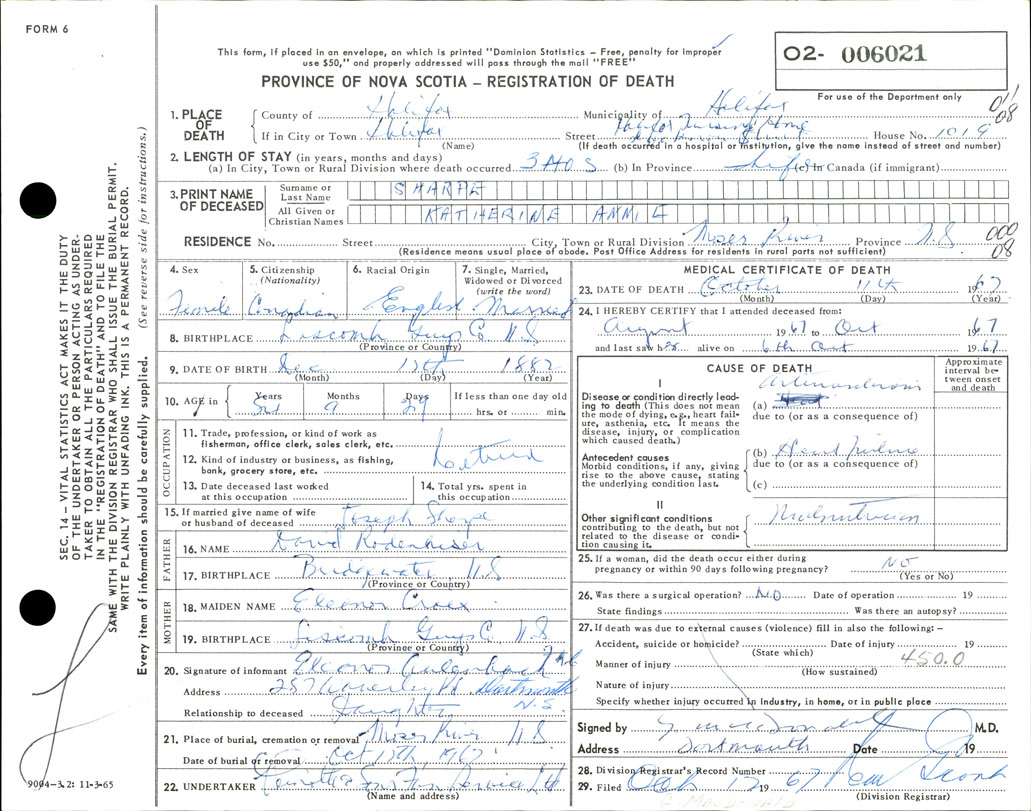 FORM 6
This form, if placed in an envelope, on which is printed "Dominion Statistics – Free, penalty for improper
use $50," and properly addressed will pass through the mail "FREE"
PROVINCE OF NOVA SCOTIA – REGISTRATION OF DEATH
O2- 006021
For use of the Department only
011
08
1. PLACE OF DEATH
County of Halifax Municipality of Halifax
If in City or Town Halifax Street Halifax Nursing Home House No. 1019
(Name) (If death occurred in a hospital or institution, give the name instead of street and number)
2. LENGTH OF STAY (in years, months and days)
(a) In City, Town or Rural Division where death occurred 3 MOS (b) In Province Life (c) In Canada (if immigrant)
3. PRINT NAME OF DECEASED
Surname or Last Name SHARPE
All Given or Christian Names KATHERINE ANNIE
RESIDENCE No. Street City, Town or Rural Division Moser River Province N.S
000
08
(Residence means usual place of abode. Post Office Address for residents in rural parts not sufficient)
4. Sex Female
5. Citizenship (Nationality) Canadian
6. Racial Origin English
7. Single, Married, Widowed or Divorced (write the word) Married
8. BIRTHPLACE Liscomb Guys Co N.S
(Province or Country)
9. DATE OF BIRTH Dec 12th 1882
(Month) (Day) (Year)
10. AGE in Years Months 9 Days 29 If less than one day old
hrs. or min.
OCCUPATION
11. Trade, profession, or kind of work as
fisherman, office clerk, sales clerk, etc.
12. Kind of industry or business, as fishing,
bank, grocery store, etc.
13. Date deceased last worked
at this occupation
14. Total yrs. spent in
this occupation
15. If married give name of wife
or husband of deceased Joseph Sharpe
FATHER
16. NAME David Rodenhiser
17. BIRTHPLACE Bridgewater N.S
(Province or Country)
MOTHER
18. MAIDEN NAME Eleanor
19. BIRTHPLACE Liscomb Guys Co N.S
(Province or Country)
20. Signature of informant Eleanor
Address 257 Waverley Rd Dartmouth
N.S.
Relationship to deceased Daughter
21. Place of burial, cremation or removal Moser River N.S
Date of burial or removal Oct 13th, 1967
22. UNDERTAKER
(Name and address)
MEDICAL CERTIFICATE OF DEATH
23. DATE OF DEATH October 11th 1967
(Month) (Day) (Year)
24. I HEREBY CERTIFY that I attended deceased from:
August 1967 to Oct 1967
and last saw her alive on 6th Oct 1967
CAUSE OF DEATH
Approximate interval between onset and death
I
Disease or condition directly leading to death (This does not mean the mode of dying, e.g., heart failure, asthenia, etc. It means the disease, injury, or complication which caused death.)
(a)
due to (or as a consequence of)
Antecedent causes
Morbid conditions, if any, giving rise to the above cause, stating the underlying condition last.
(b) Heart failure
due to (or as a consequence of)
(c)
II
Other significant conditions
contributing to the death, but not related to the disease or condition causing it.
Malnutrition
25. If a woman, did the death occur either during
pregnancy or within 90 days following pregnancy? NO
(Yes or No)
26. Was there a surgical operation? NO Date of operation 19
State findings Was there an autopsy?
27. If death was due to external causes (violence) fill in also the following: –
Accident, suicide or homicide? Date of injury 19
(State which)
Manner of injury 450.0
(How sustained)
Nature of injury
Specify whether injury occurred in Industry, in home, or in public place
Signed by M.D.
Address Dartmouth Date 19
28. Division Registrar's Record Number
29. Filed Oct 1967
(Division Registrar)
SEC. 14 – VITAL STATISTICS ACT MAKES IT THE DUTY
OF THE UNDERTAKER OR PERSON ACTING AS UNDER-
TAKER TO OBTAIN ALL THE PARTICULARS REQUIRED
IN THE "REGISTRATION OF DEATH" AND TO FILE THE
SAME WITH THE DIVISION REGISTRAR WHO SHALL ISSUE THE BURIAL PERMIT.
WRITE PLAINLY WITH UNFADING INK. THIS IS A PERMANENT RECORD.
Every item of information should be carefully supplied. (See reverse side for instructions.)
9094-3.2: 11-3-65